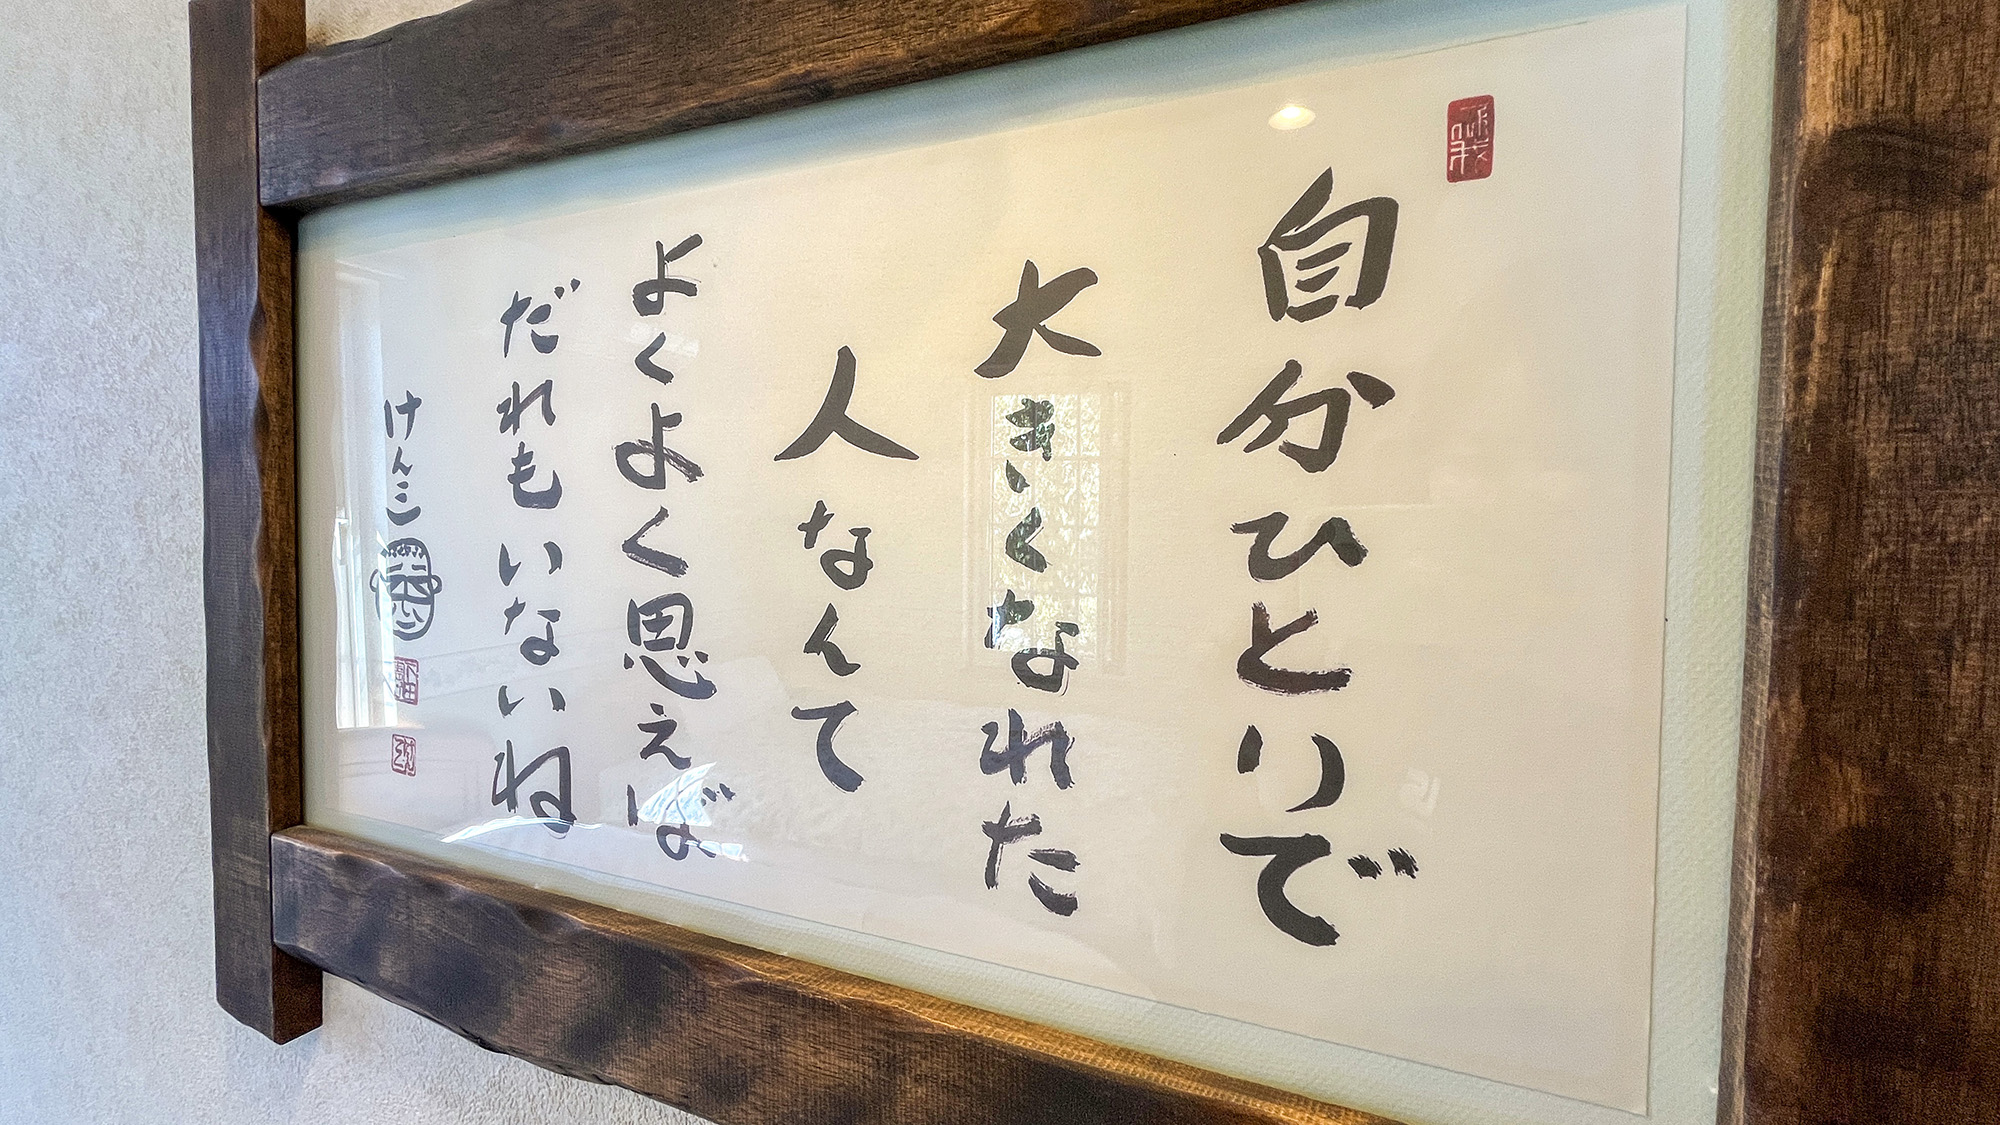 自分ひとりで
大きくなれた
人なんて
よくよく思えば
だれもいないね
けんこ